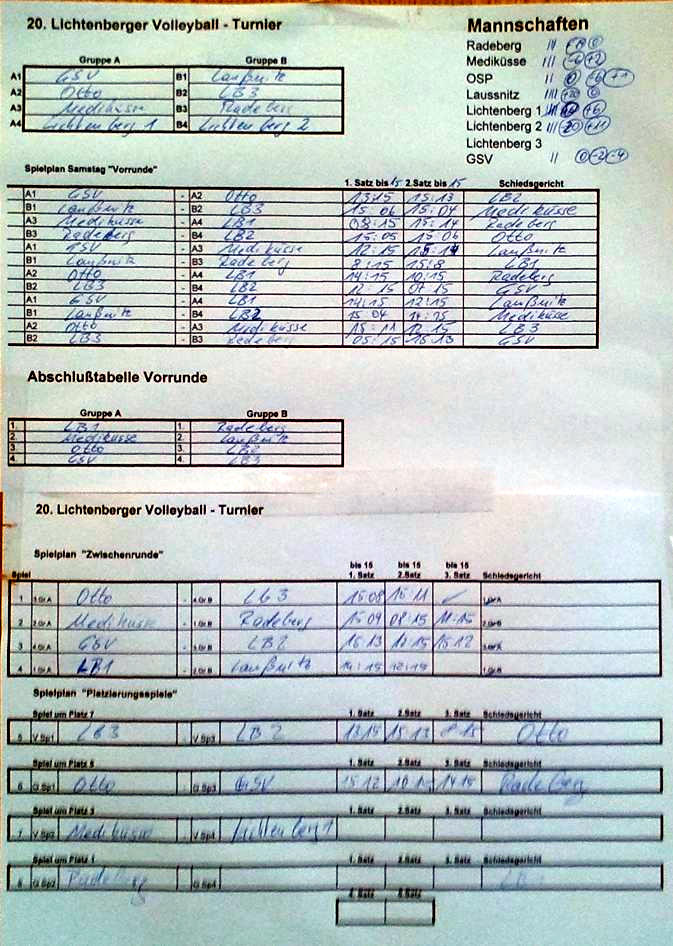 20. Lichtenberger Volleyball - Turnier
Mannschaften
Radeberg
Mediküsse
OSP
Laussnitz
Lichtenberg 1
Lichtenberg 2
Lichtenberg 3
GSV
Gruppe A Gruppe B
A1 GSV B1 Laußnitz
A2 Otto B2 LB3
A3 Mediküsse B3 Radeberg
A4 Lichtenberg 1 B4 Lichtenberg 2
Spielplan Samstag "Vorrunde"
1. Satz bis 15 2.Satz bis 15 Schiedsgericht
A1 GSV - A2 Otto 13:15 15:13 LB2
B1 Laußnitz - B2 LB3 15:06 15:04 Mediküsse
A3 Mediküsse - A4 LB1 08:15 15:14 Radeberg
B3 Radeberg - B4 LB2 15:05 15:06 Otto
A1 GSV - A3 Mediküsse 12:15 Laußnitz
B1 Laußnitz - B3 Radeberg 8:15 15:8 LB1
A2 Otto - A4 LB1 14:15 10:15 Radeberg
B2 LB3 - B4 LB2 12 15 07 15 GSV
A1 GSV - A4 LB1 14:15 12:15 Laußnitz
B1 Laußnitz - B4 LB2 15:04 14:15 Mediküsse
A2 Otto - A3 Mediküsse 15:11 12:15 LB3
B2 LB3 - B3 Radeberg 05:15 15:13 GSV
Abschlußtabelle Vorrunde
Gruppe A Gruppe B
1. LB1 1. Radeberg
2. Mediküsse 2. Laußnitz
3. Otto 3. LB2
4. GSV 4. LB3
20. Lichtenberger Volleyball - Turnier
Spielplan "Zwischenrunde"
bis 15 bis 15 bis 15
Spiel 1. Satz 2.Satz 3. Satz Schiedsgericht
1 3.Gr A Otto - 4.Gr B LB3 15:08 15:11 1.Gr A
2 2.Gr A Mediküsse - 1.Gr B Radeberg 15:09 08:15 11:15 2.Gr B
3 4.Gr A GSV - 3.Gr B LB2 15:13 15:12 3.Gr A
4 1.Gr A LB1 - 2.Gr B Laußnitz 14:15 12:15 1.Gr B
Spielplan "Platzierungsspiele"
Spiel um Platz 7 1. Satz 2.Satz 3. Satz Schiedsgericht
5 V Sp1 LB3 - V Sp3 LB2 13:15 15:13 8:15 Otto
Spiel um Platz 5 1. Satz 2.Satz 3. Satz Schiedsgericht
6 G Sp1 Otto - G Sp3 GSV 15:12 10:15 14:15 Radeberg
Spiel um Platz 3 1. Satz 2.Satz 3. Satz Schiedsgericht
7 V Sp2 Mediküsse - V Sp4 Lichtenberg 1
Spiel um Platz 1 1. Satz 2.Satz 3. Satz Schiedsgericht
8 G Sp2 Radeberg - G Sp4
4. Satz 5. Satz